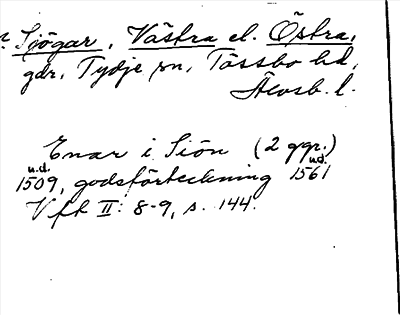 ? Sjögar, Västra el. Östra,
gdr, Tydje sn, Tössbo hd,
Älvsb. l.
Enar i Siön (2 ggr.)
u.d. u.d.
1509, godsförteckning 1561
Vfk II: 8-9, s. 144.